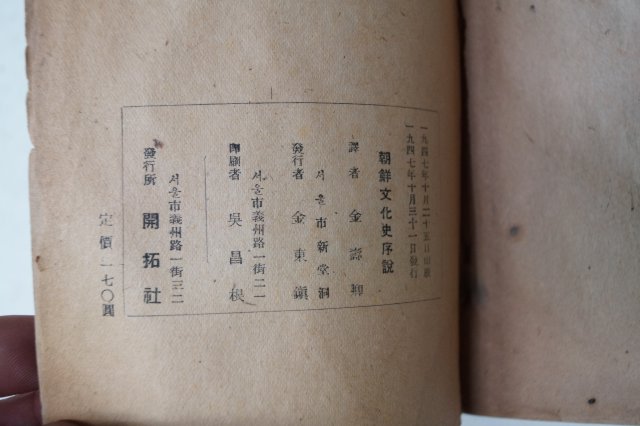 一九四七年十月二十五日印刷
一九四七年十月三十一日發行
朝鮮文化史序說
譯者 金壽卿
서울市新堂洞
發行者 金東鎭
서울市義州路一街二一
印刷者 吳昌根
서울市義州路一街三二
發行所 開拓社
定價一七〇圓